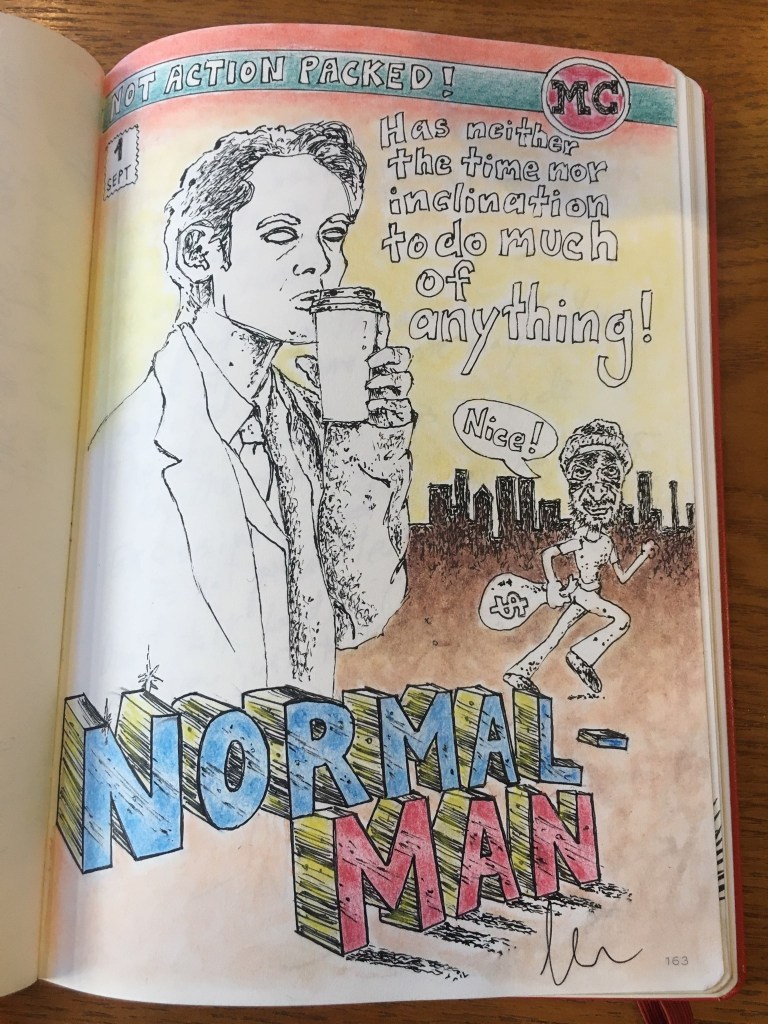 NOT ACTION PACKED!
MC
1
SEPT
Has neither
the time nor
inclination
to do much
of
anything!
Nice!
$
NORMAL-
MAN
163